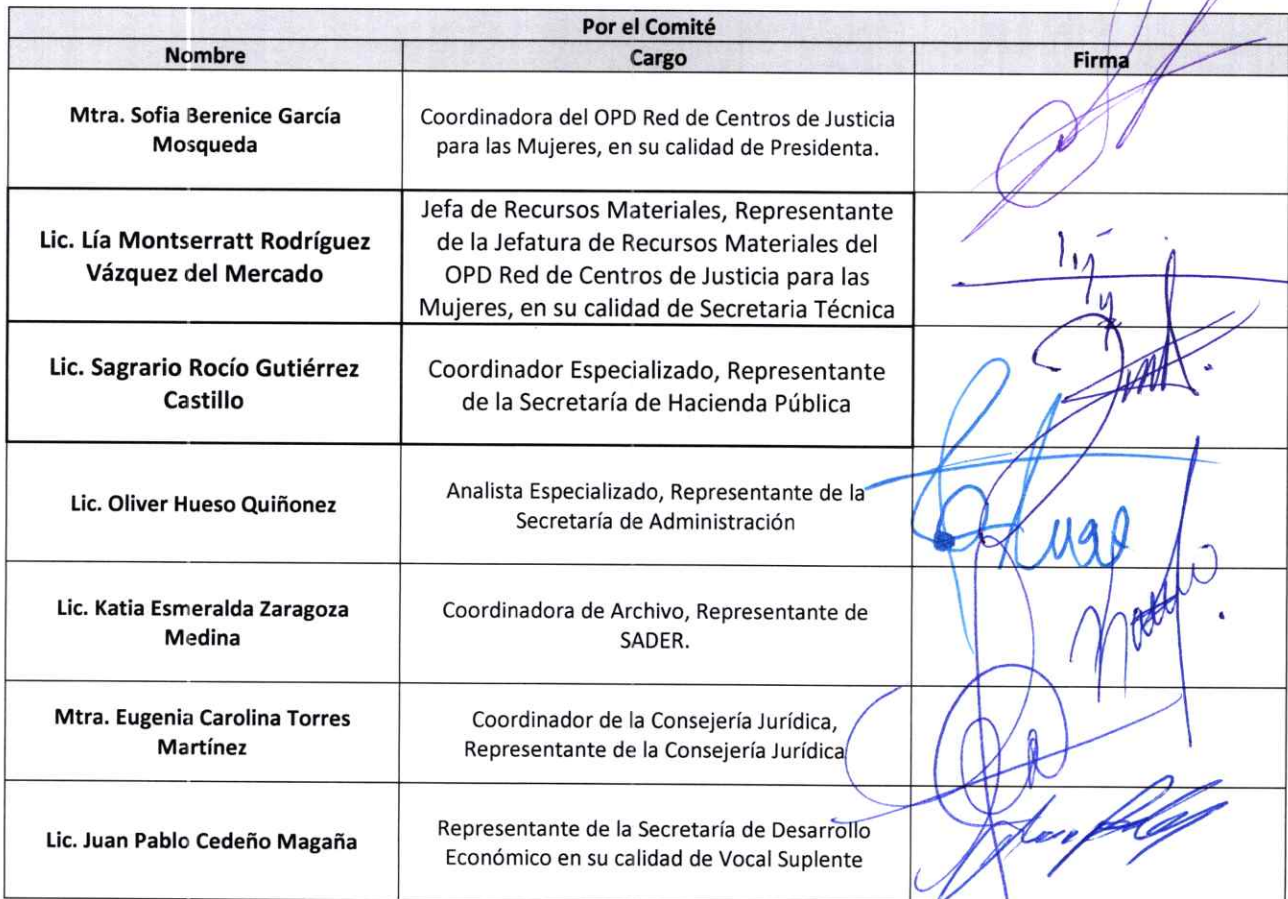 Por el Comité
Nombre Cargo Firma
Mtra. Sofia Berenice García
Mosqueda
Coordinadora del OPD Red de Centros de Justicia
para las Mujeres, en su calidad de Presidenta.
Lic. Lía Montserratt Rodríguez
Vázquez del Mercado
Jefa de Recursos Materiales, Representante
de la Jefatura de Recursos Materiales del
OPD Red de Centros de Justicia para las
Mujeres, en su calidad de Secretaria Técnica
Lic. Sagrario Rocío Gutiérrez
Castillo
Coordinador Especializado, Representante
de la Secretaría de Hacienda Pública
Lic. Oliver Hueso Quiñonez
Analista Especializado, Representante de la
Secretaría de Administración
Lic. Katia Esmeralda Zaragoza
Medina
Coordinadora de Archivo, Representante de
SADER.
Mtra. Eugenia Carolina Torres
Martínez
Coordinador de la Consejería Jurídica,
Representante de la Consejería Jurídica
Lic. Juan Pablo Cedeño Magaña
Representante de la Secretaría de Desarrollo
Económico en su calidad de Vocal Suplente